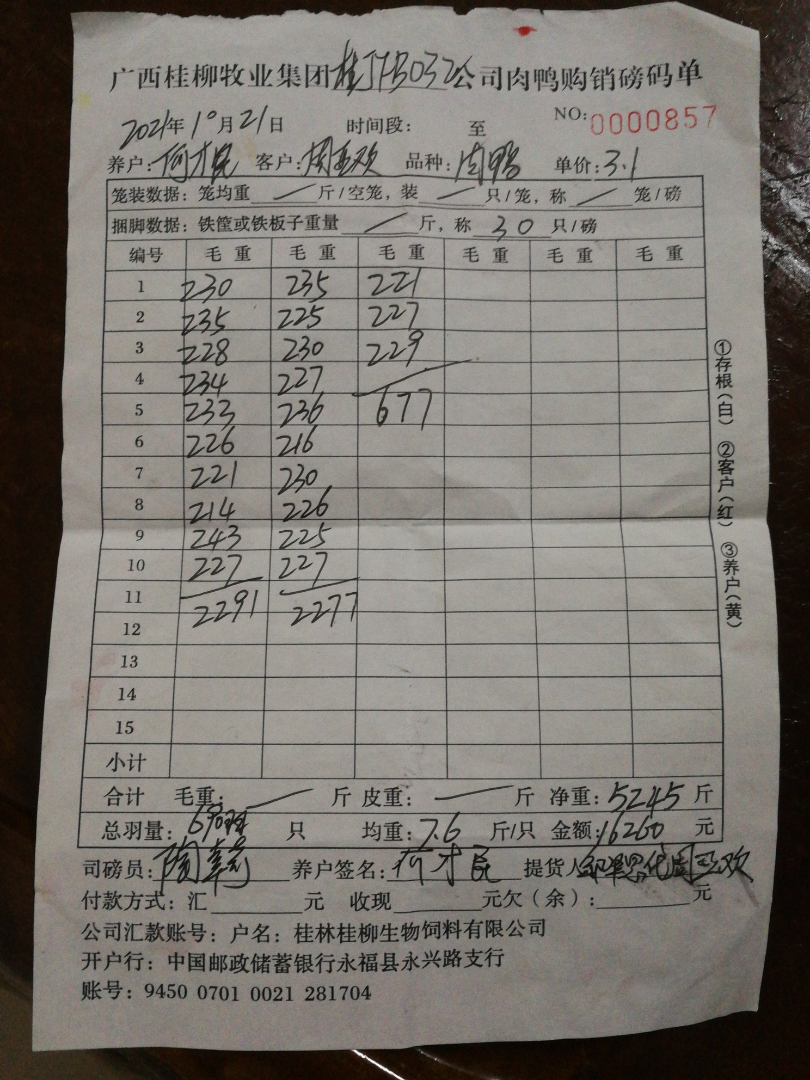 广西桂柳牧业集团桂J1B032公司肉鸭购销磅码单
2021年10月21日 时间段: 至 NO:0000857
养户:何才民 客户:周玉欢 品种:肉鸭 单价:3.1
笼装数据: 笼均重 / 斤/空笼, 装 / 只/笼, 称 / 笼/磅
捆脚数据: 铁筐或铁板子重量 / 斤, 称 30 只/磅
编号 毛重 毛重 毛重 毛重 毛重 毛重
1 230 235 221
2 235 225 227
3 228 230 229
4 234 227
5 233 236 677
6 226 216
7 221 230
8 214 226
9 243 225
10 227 227
11 2291 2277
12
13
14
15
小计
合计 毛重: / 斤 皮重: / 斤 净重:5245 斤
总羽量: 只 均重:7.6 斤/只 金额:16260 元
司磅员: 养户签名:何才民 提货人 周玉欢
付款方式: 汇 元 收现 元欠(余): 元
公司汇款账号: 户名: 桂林桂柳生物饲料有限公司
开户行: 中国邮政储蓄银行永福县永兴路支行
账号: 9450 0701 0021 281704
①存根(白) ②客户(红) ③养户(黄)